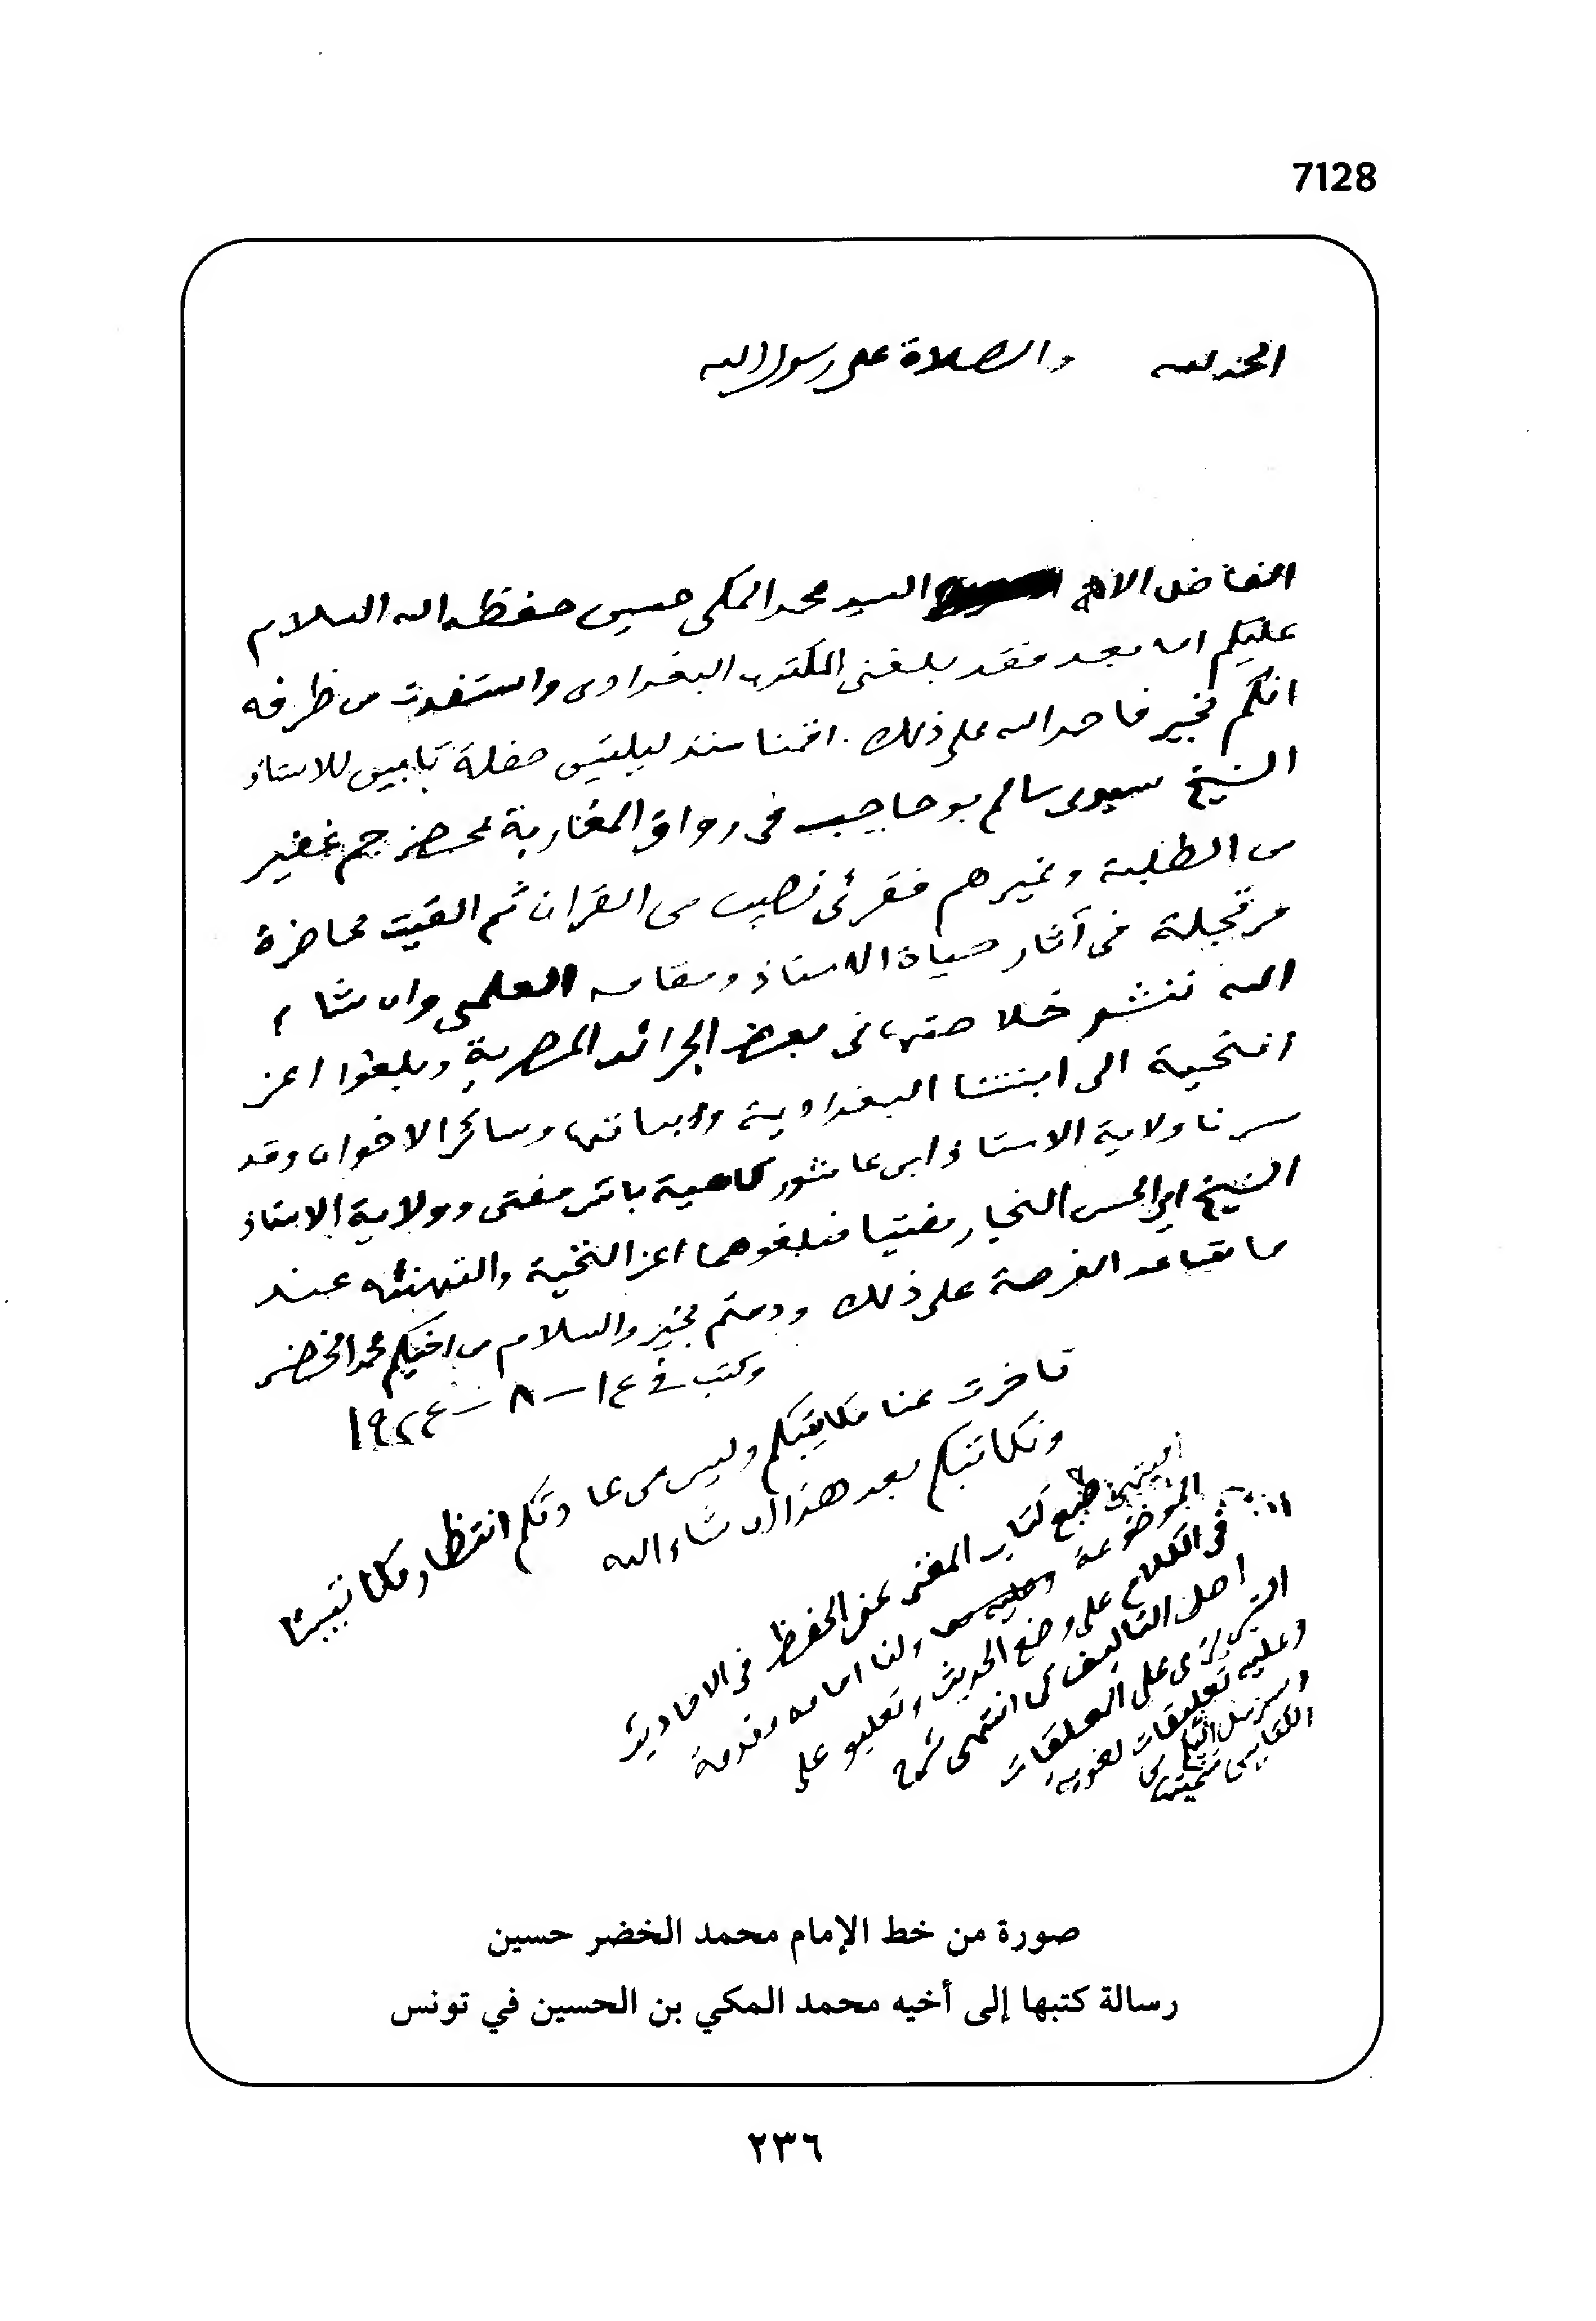 7128
الحمد لله والصلاة على رسول الله
الفاضل الاخ السيد محمد المكي حسين حفظه الله السلام
عليكم اما بعد فقد بلغني المكتوب البغدادي واستفدت من ظرفه
انكم بخير فاحمد الله على ذلك. اقمنا منذ ليلتين حفلة تابين للاستاذ
الشيخ سيدي سالم بوحاجب في رواق المغاربة بمحضر جم غفير
من الطلبة وغيرهم فقرئ نصيب من القرآن ثم القيت محاضرة
مرتجلة في آثار حياة الاستاذ ومقامه العلمي وان شاء
الله ننشر خلاصتها في بعض الجرائد المصرية وبلغوا اعز
التحية الى ابنتنا البغداوية وابنائها وسائر الاخوان وقد
سرنا ولاية الاستاذ ابن عاشور كاهية باش مفتي وولاية الاستاذ
الشيخ ابي الحسن النجار مفتيا فبلغوهما اعز التحية والتهنئة عند
ما تساعد الفرصة على ذلك ودمتم بخير والسلام من اخيكم محمد الخضر
وكتب في ١٤ - ٨ - ١٩٢٤
تاخرت عنا مكاتبتكم وليس من عادتكم انتظار مكاتبتنا
ونكاتبكم بعد هذا ان شاء الله
انتهى طبع كتاب المغني عن الحفظ في الاحاديث
الموضوعة ولنا امامه مقدمة
في الكلام على وضع الحديث وتعليق على
اصل التاليف كما انتهى شرح
التبريزي على المعلقات
وعليه تعليقات لغوية
وسنرسل اليكم
صورة من خط الإمام محمد الخضر حسين
رسالة كتبها إلى أخيه محمد المكي بن الحسين في تونس
٢٣٦